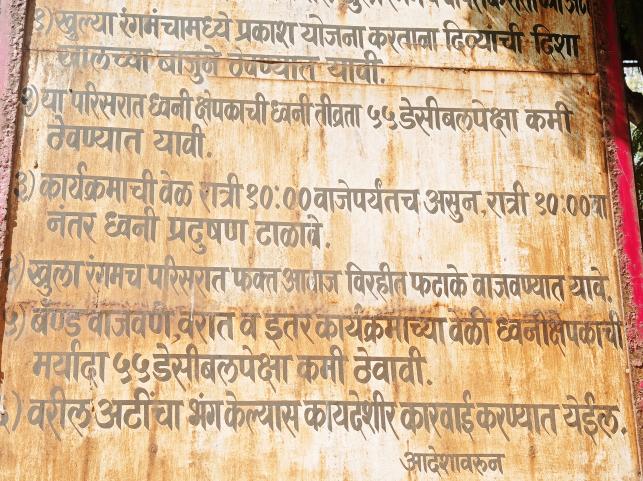 १) खुल्या रंगमंचामध्ये प्रकाश योजना करताना दिव्याची दिशा
खालच्या बाजुने ठेवण्यात यावी.
२) या परिसरात ध्वनी क्षेपकाची ध्वनी तीव्रता ५५ डेसीबलपेक्षा कमी
ठेवण्यात यावी.
३) कार्यक्रमाची वेळ रात्री १०:०० वाजेपर्यंतच असुन, रात्री १०:००वा
नंतर ध्वनी प्रदुषण टाळावे.
४) खुला रंगमच परिसरात फक्त आवाज विरहीत फटाके वाजवण्यात यावे.
५) बॅण्ड वाजवणे, वरात व इतर कार्यक्रमाच्या वेळी ध्वनीक्षेपकाची
मर्यादा ५५ डेसीबलपेक्षा कमी ठेवावी.
६) वरील अटींचा भंग केल्यास कायदेशीर कारवाई करण्यात येईल.
आदेशावरुन